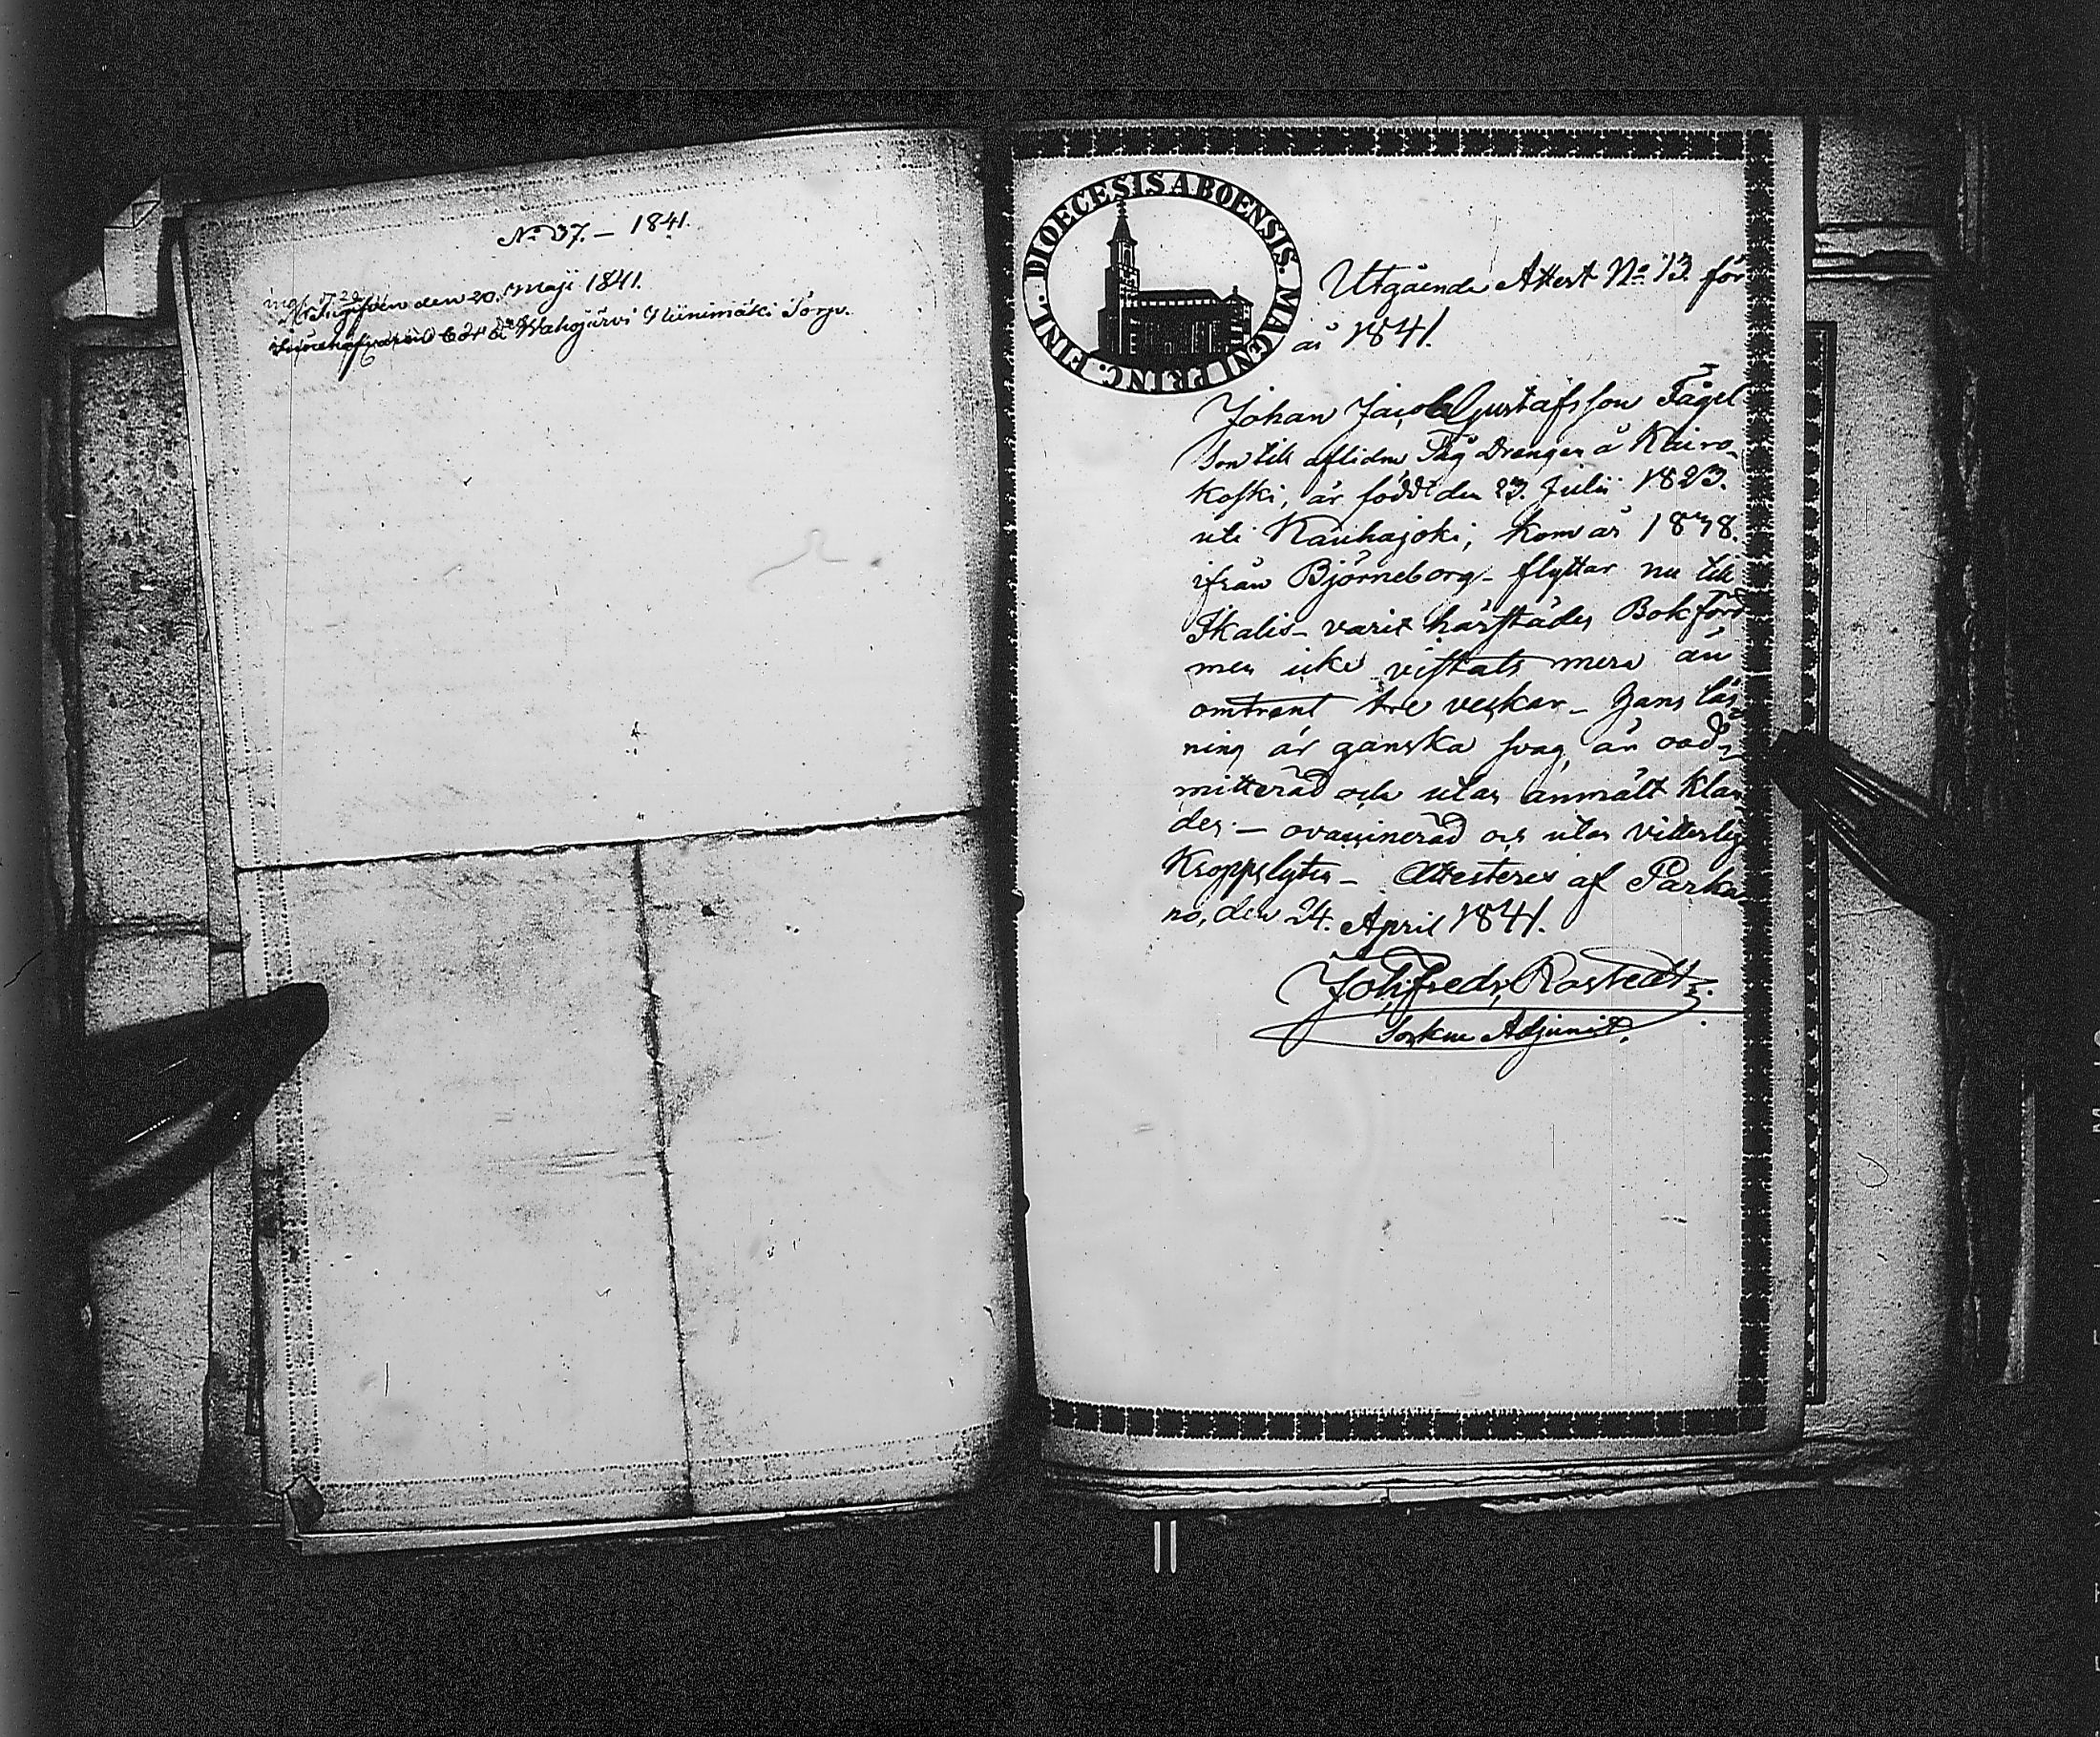 No 37. — 1841.
den 20. Maji 1841.
Wahojärvi Niinimäki Torp.
DIOECESIS ABOENSIS. MAGNI PRINC. FINL.
Utgående Attest No 13. för
år 1841.
Johan Jacob Gustafsson Fågel
Son till aflidne Såg Drengen å Kairo-
koski, är född den 23. Julii 1823.
uti Kauhajoki, kom år 1838.
ifrån Björneborg – flyttar nu till
Ikalis – varit härstädes Bokförd
men icke vistats mera än
omtrent tre veckor – Hans läs-
ning är ganska svag, är oad-
mitterad och utan anmält klan-
der – ovaccinerad och utan vitterlig
Kroppslyten – Attesteres af Parka-
no, den 24. April 1841.
Joh. Fredr. Rostedt
Sockne Adjunct.